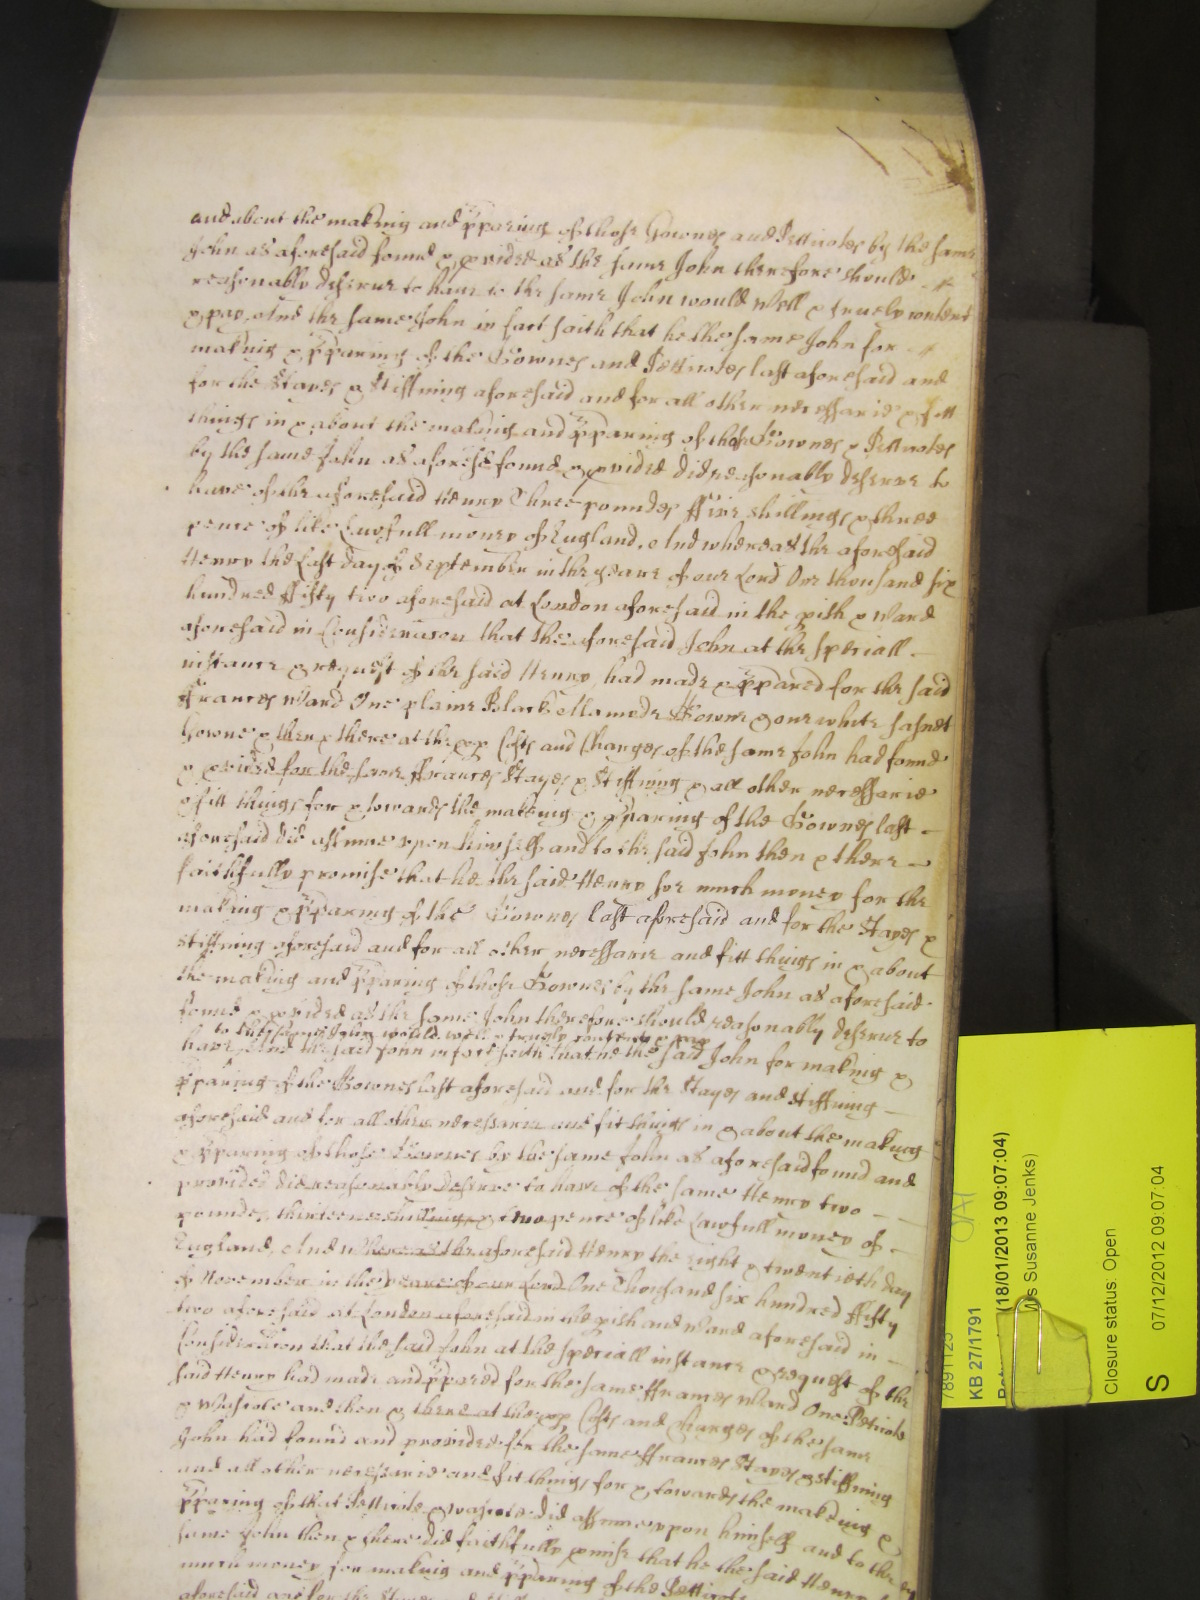 and about the making and p̄paring of those Gownes and Petticotes by the same
John as aforesaid found & p̱vided as the same John therefore should
reasonably deserue to haue to the same John would well & truely content
& pay, And the same John in fact saith that he the same John for
making & p̄paring of the Gownes and Petticotes last aforesaid and
for the Stayes & Stiffning aforesaid and for all other necessarie & fitt
things in & about the making and p̄paring of those Gownes & Petticotes
by the same John as aforesd found & p̱vided did reasonably deserue to
have of the aforesaid Henry Three poundes ffive shillings & three
pence of like Lawfull money of England. And whereas the aforesaid
Henry the Last day of September in the yeare of our Lord One thousand six
hundred ffifty two aforesaid at London aforesaid in the p̱ish & Ward
aforesaid in Consideracon that the aforesaid John at the speciall
instance & request of the said Henry, had made & p̄pared for the said
Frances Ward One plaine Black Allamode Gowne & one white sasnet
Gowne & then & there at the p̱p̱ Costs and Charges of the same John had found
& p̱vided for the same ffrances Stayes & Stiffning & all other necessarie
& fitt things for & towardes the making & p̄paring of the Gownes last
aforesaid did assume vpon himselfe and to the said John then & there
faithfully promise that he the said Henry soe much money for the
making & p̄paring of the Gownes last aforesaid and for the Stayes &
stiffning aforesaid and for all other necessarie and fitt things in & about
the making and p̄paring of those Gownes by the same John as aforesaid
found & p̱vided as the same John therefore should reasonably deserue to
to the same John would well & truely content & pay
have, And the said John in fact saith that he the said John for making &
p̄paring of the Gownes last aforesaid and for the Stayes and Stiffning
aforesaid and for all other necessarie and fit things in & about the making
& p̄paring of those Gownes by the same John as aforesaid found and
provided did reasonably deserve to have of the same Henry two
poundes thirteene shillings & two pence of like Lawfull money of
England. And whereas the aforesaid Henry the eight & twentieth day
of November in the yeare of our Lord One Thousand six hundred ffifty
two aforesaid at London aforesaid in the p̱ish and Ward aforesaid in
Consideracon that the said John at the speciall instance & request of the
said Henry had made and p̄pared for the same ffrances Ward One Peticote
& Wascote and then & there at the p̱p̱ Costs and Charges of the same
John had found and provided for the same ffrances Stayes & stiffning
and all other necessarie and fit things for & towardes the making &
p̄paring of that Petticote & wascote did assume vpon himself and to the
same John then & there did faithfully p̱mise that he the said Henry
much money for making and p̄paring of the Petticote
aforesaid and for the Stayes and
7891125
KB 27/1791
(18/01/2013 09:07:04)
s Susanne Jenks)
Closure status: Open
S
07/12/2012 09:07:04